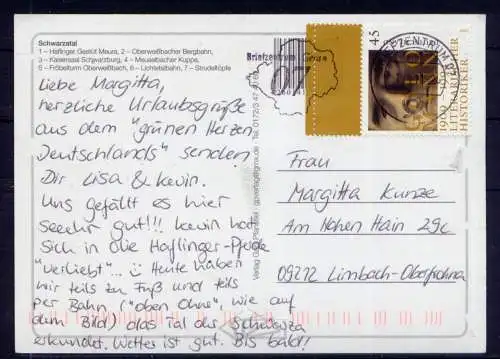 Schwarzatal
1 – Haflinger Gestüt Meura, 2 – Oberweißbacher Bergbahn,
3 – Kaisersaal Schwarzburg, 4 – Meuselbacher Kuppe,
5 – Fröbelturm Oberweißbach, 6 – Lichtetalbahn, 7 – Strudelköpfe
Liebe Margitta,
herzliche Urlaubsgrüße
aus dem "grünen Herzen
Deutschlands" senden
Dir Lisa & Kevin.
Uns gefällt es hier
seeehr gut!!! Kevin hat
sich in die Haflinger-Pferde
"verliebt"... Heute haben
wir teils zu Fuß und teils
per Bahn ("oben ohne", wie auf
dem Bild) das Tal der Schwarza
erkundet. Wetter ist gut. Bis bald!
Briefzentrum
07
45
GOLO MANN
1909 1994
LITTERARISCHER
HISTORIKER
Frau
Margitta Kunze
Am Hohen Hain 29c
09212 Limbach-Oberfrohna